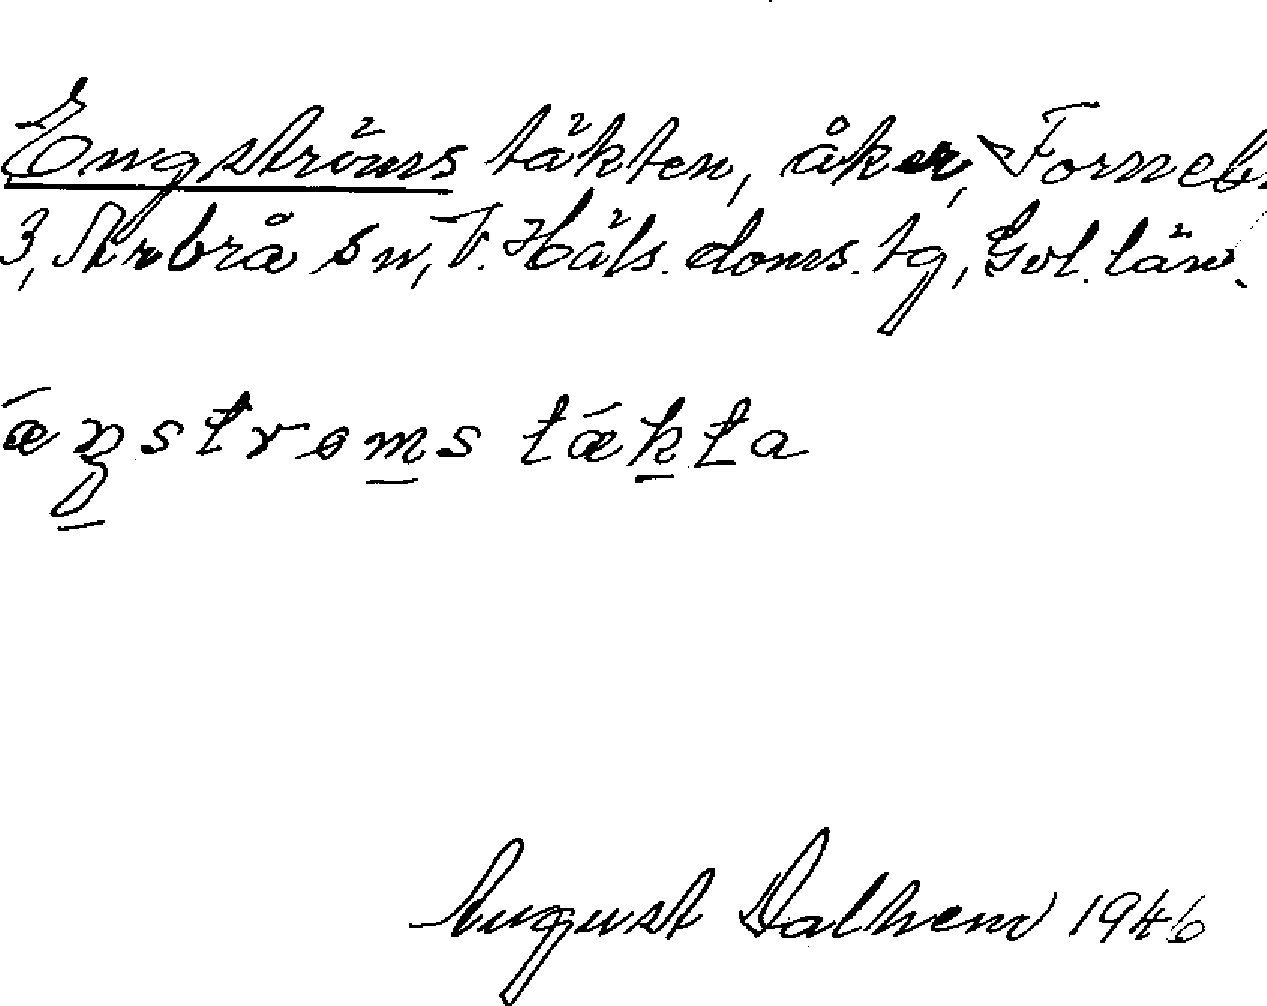 Engströms täkten, åker, Forneb
3, Arbrå sn, V. Häls. doms. tg, Gvl. län.
ǽŋstroms tǽkta
August Dalhem 1946